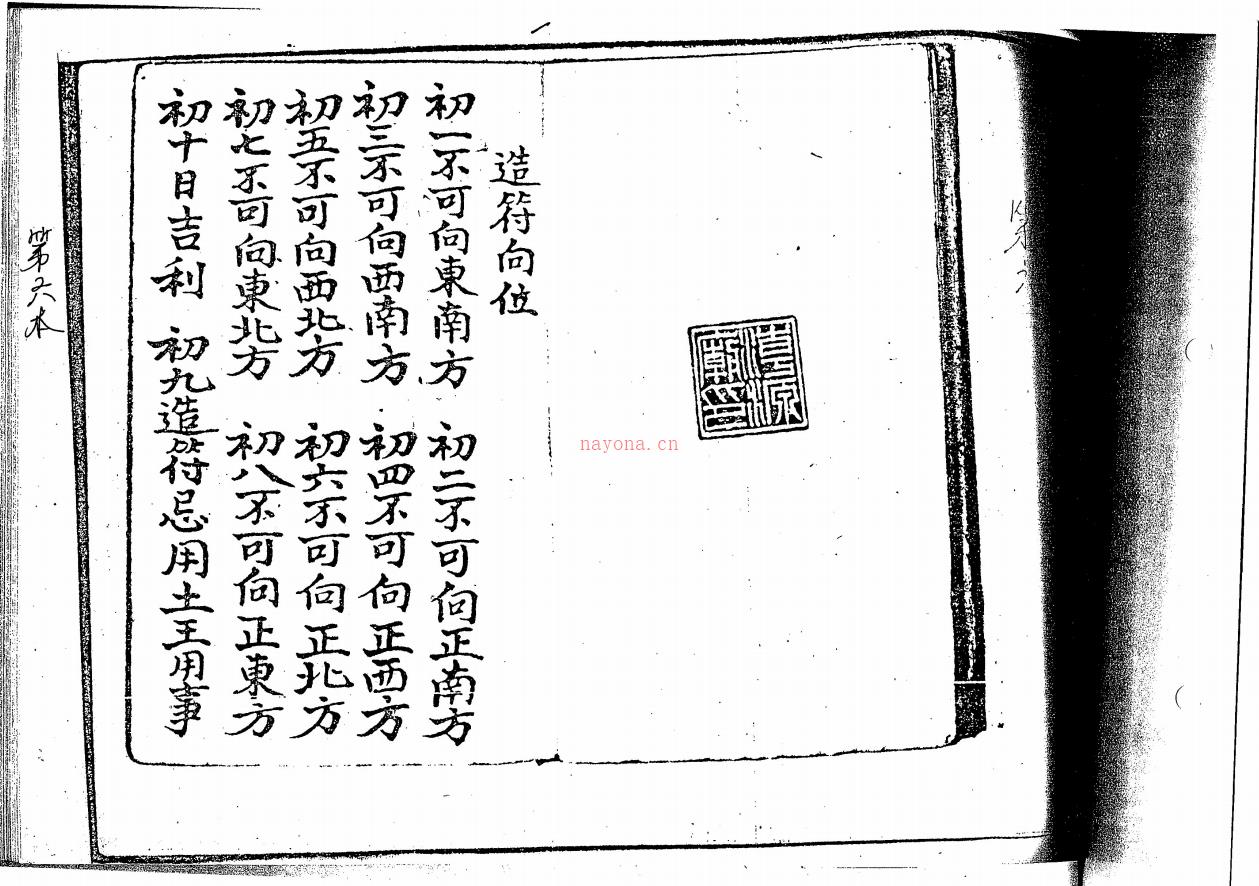 造符向位
初一不可向東南方 初二不可向正南方
初三不可向西南方 初四不可向正西方
初五不可向西北方 初六不可向正北方
初七不可向東北方 初八不可向正東方
初十日吉利 初九造符忌用土王用事
清源
廟印
nayona.cn
本